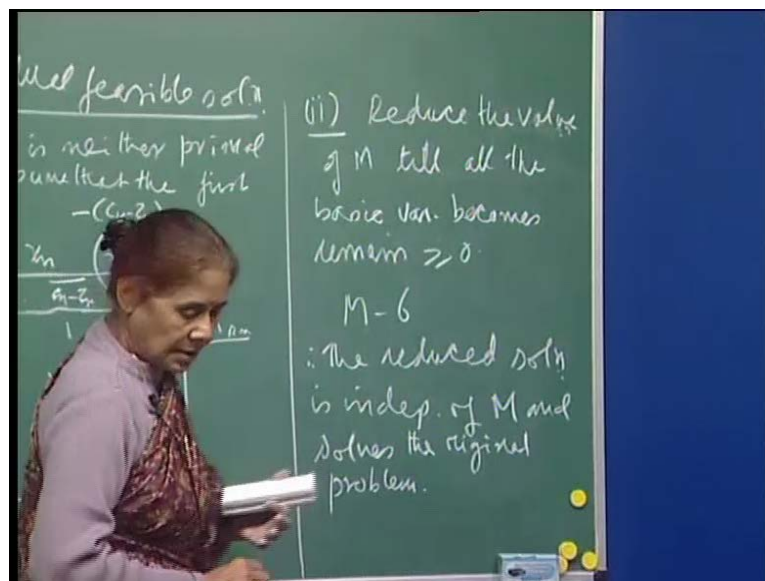 feasible soln.
is neither primal
that the first
(ii) Reduce the value
of M till all the
basic var. becomes
remain ≥ 0.
M - 6
∴ The reduced soln
is indep. of M and
solves the original
problem.